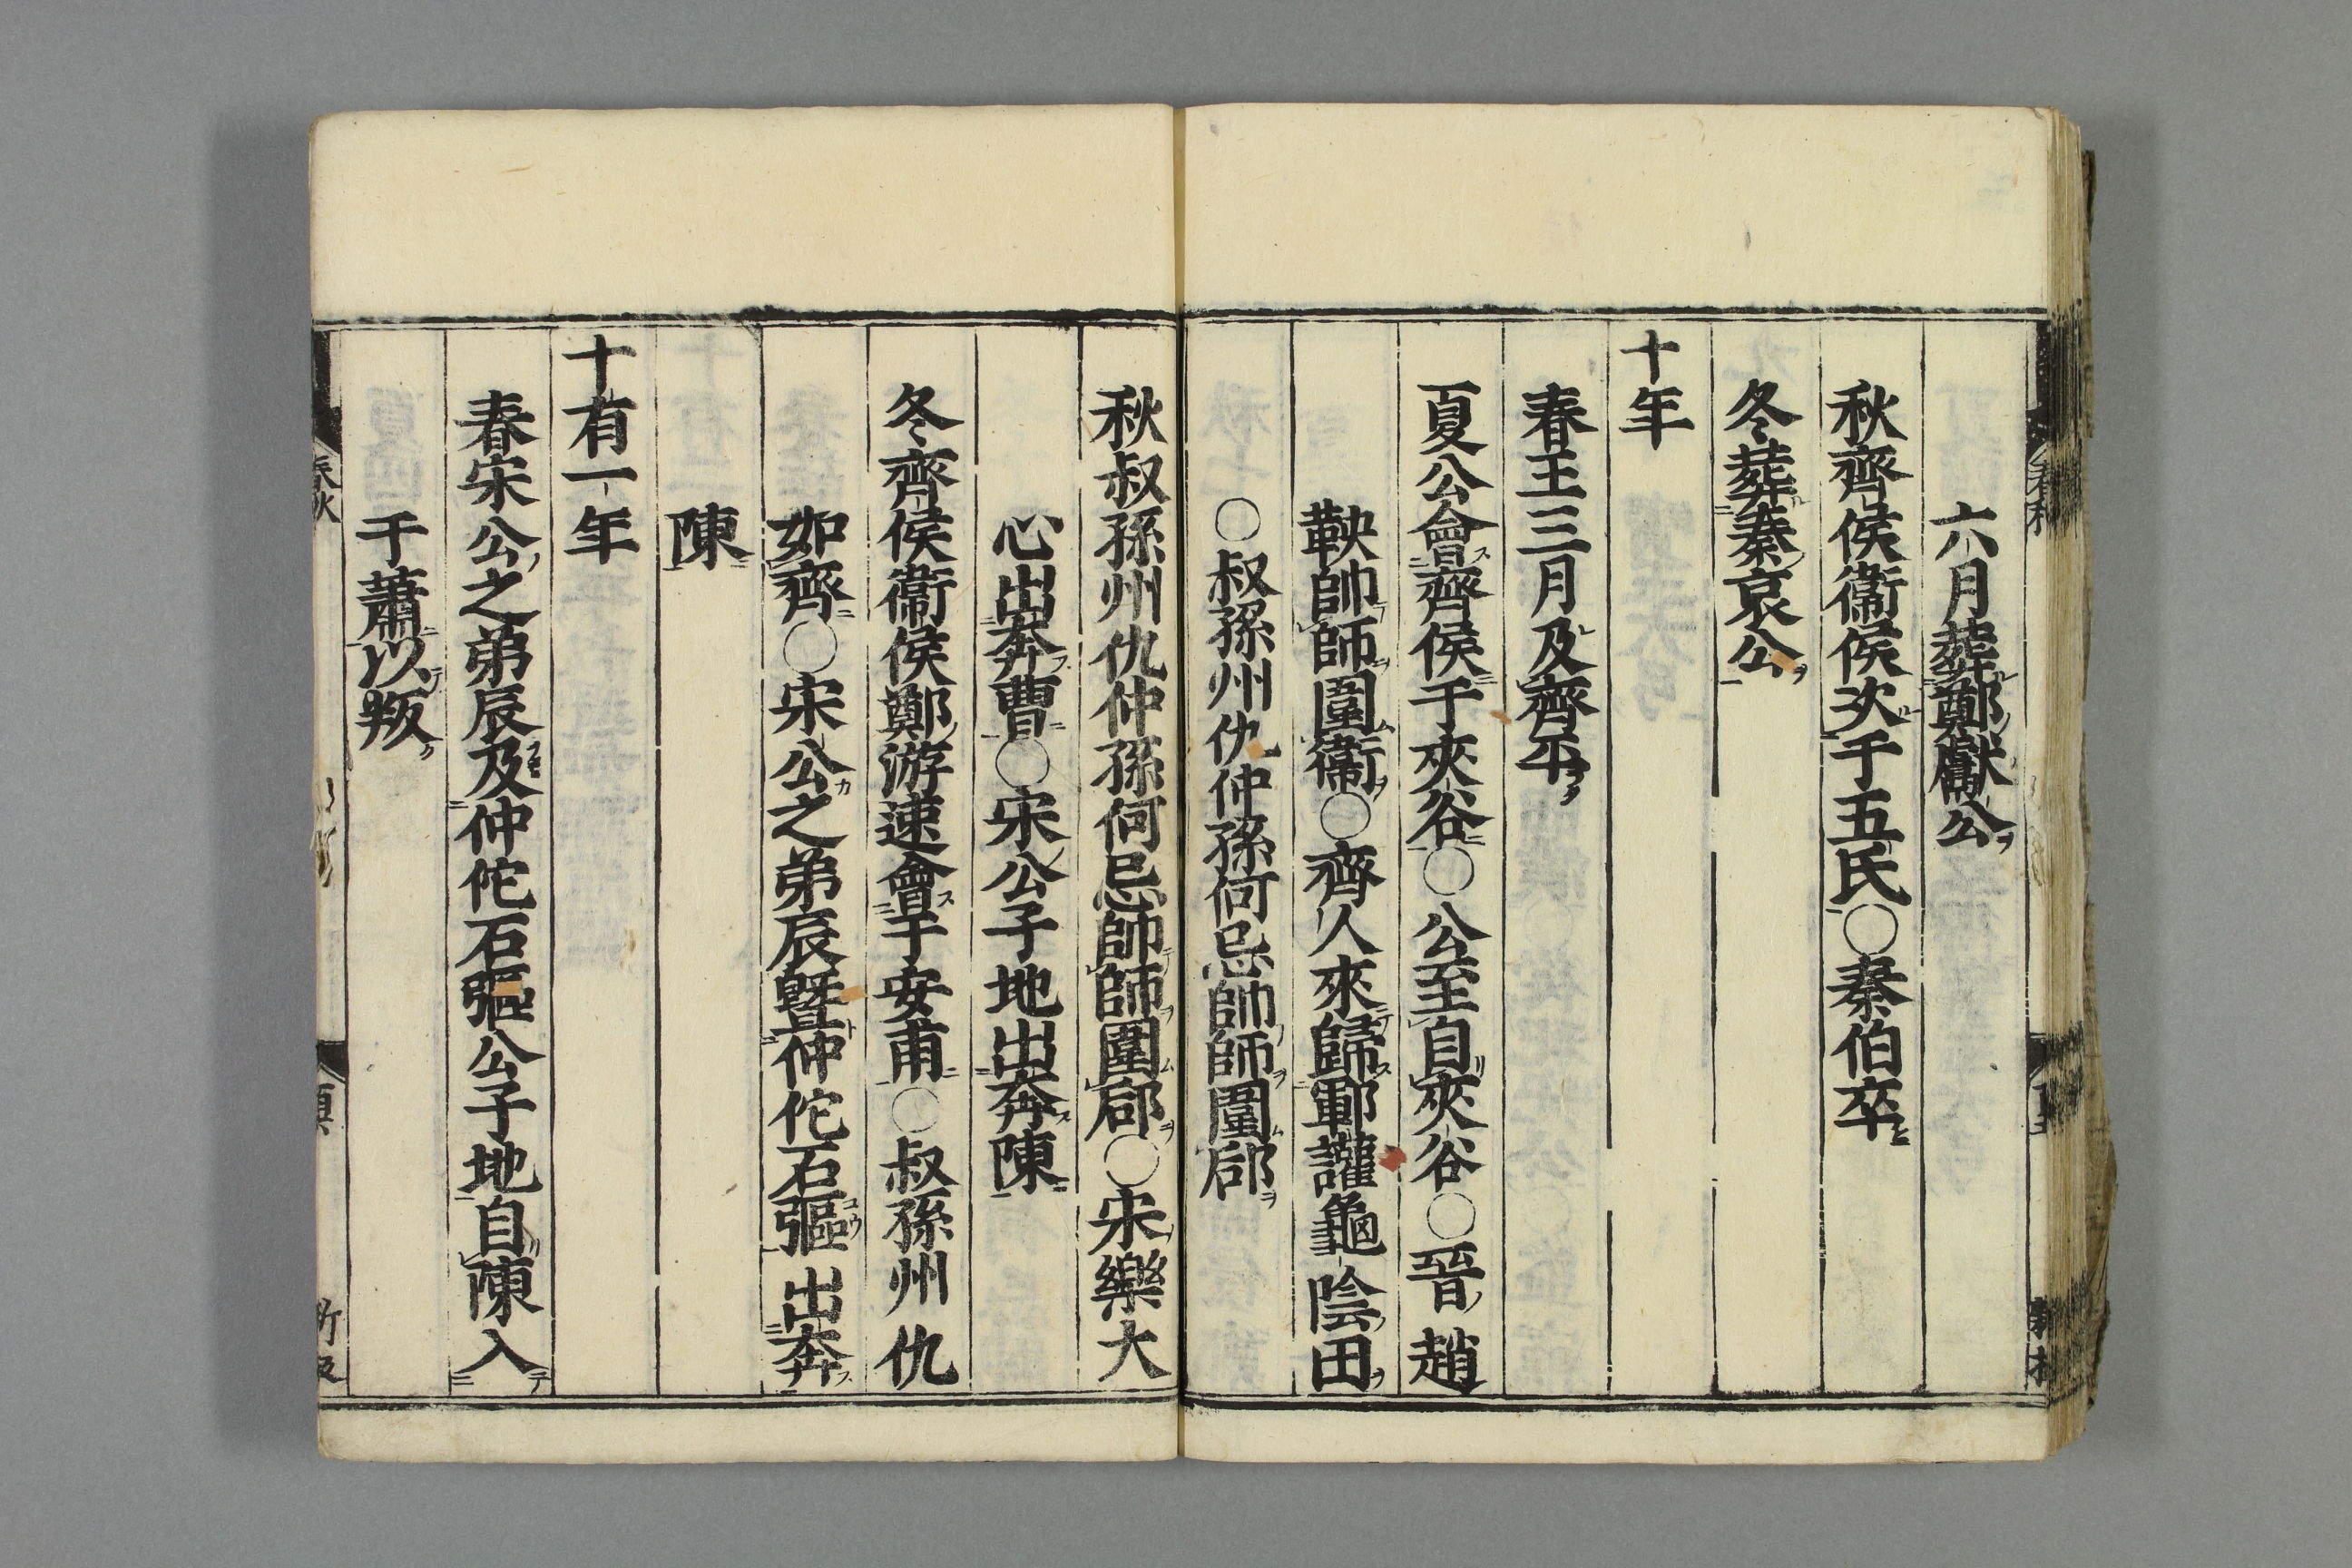 六月葬鄭獻公
秋齊侯衞侯次于五氏○秦伯卒
冬葬秦哀公
十年
春王三月及齊平
夏公會齊侯于夾谷○公至自夾谷○晉趙
鞅帥師圍衞○齊人來歸鄆讙龜陰田
○叔孫州仇仲孫何忌帥師圍郈
秋叔孫州仇仲孫何忌帥師圍郈○宋樂大
心出奔曹○宋公子地出奔陳
冬齊侯衞侯鄭游速會于安甫○叔孫州仇
如齊○宋公之弟辰曁仲佗石彄出奔
陳
十有一年
春宋公之弟辰及仲佗石彄公子地自陳入
于蕭以叛
春秋